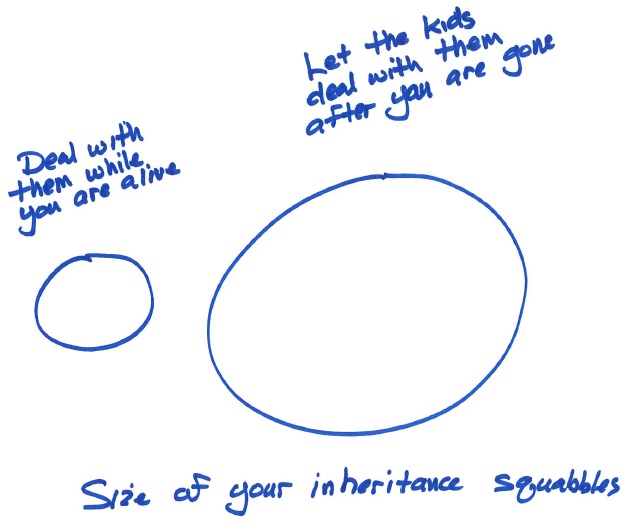 Let the kids
deal with them
after you are gone
Deal with
them while
you are alive
Size of your inheritance squabbles